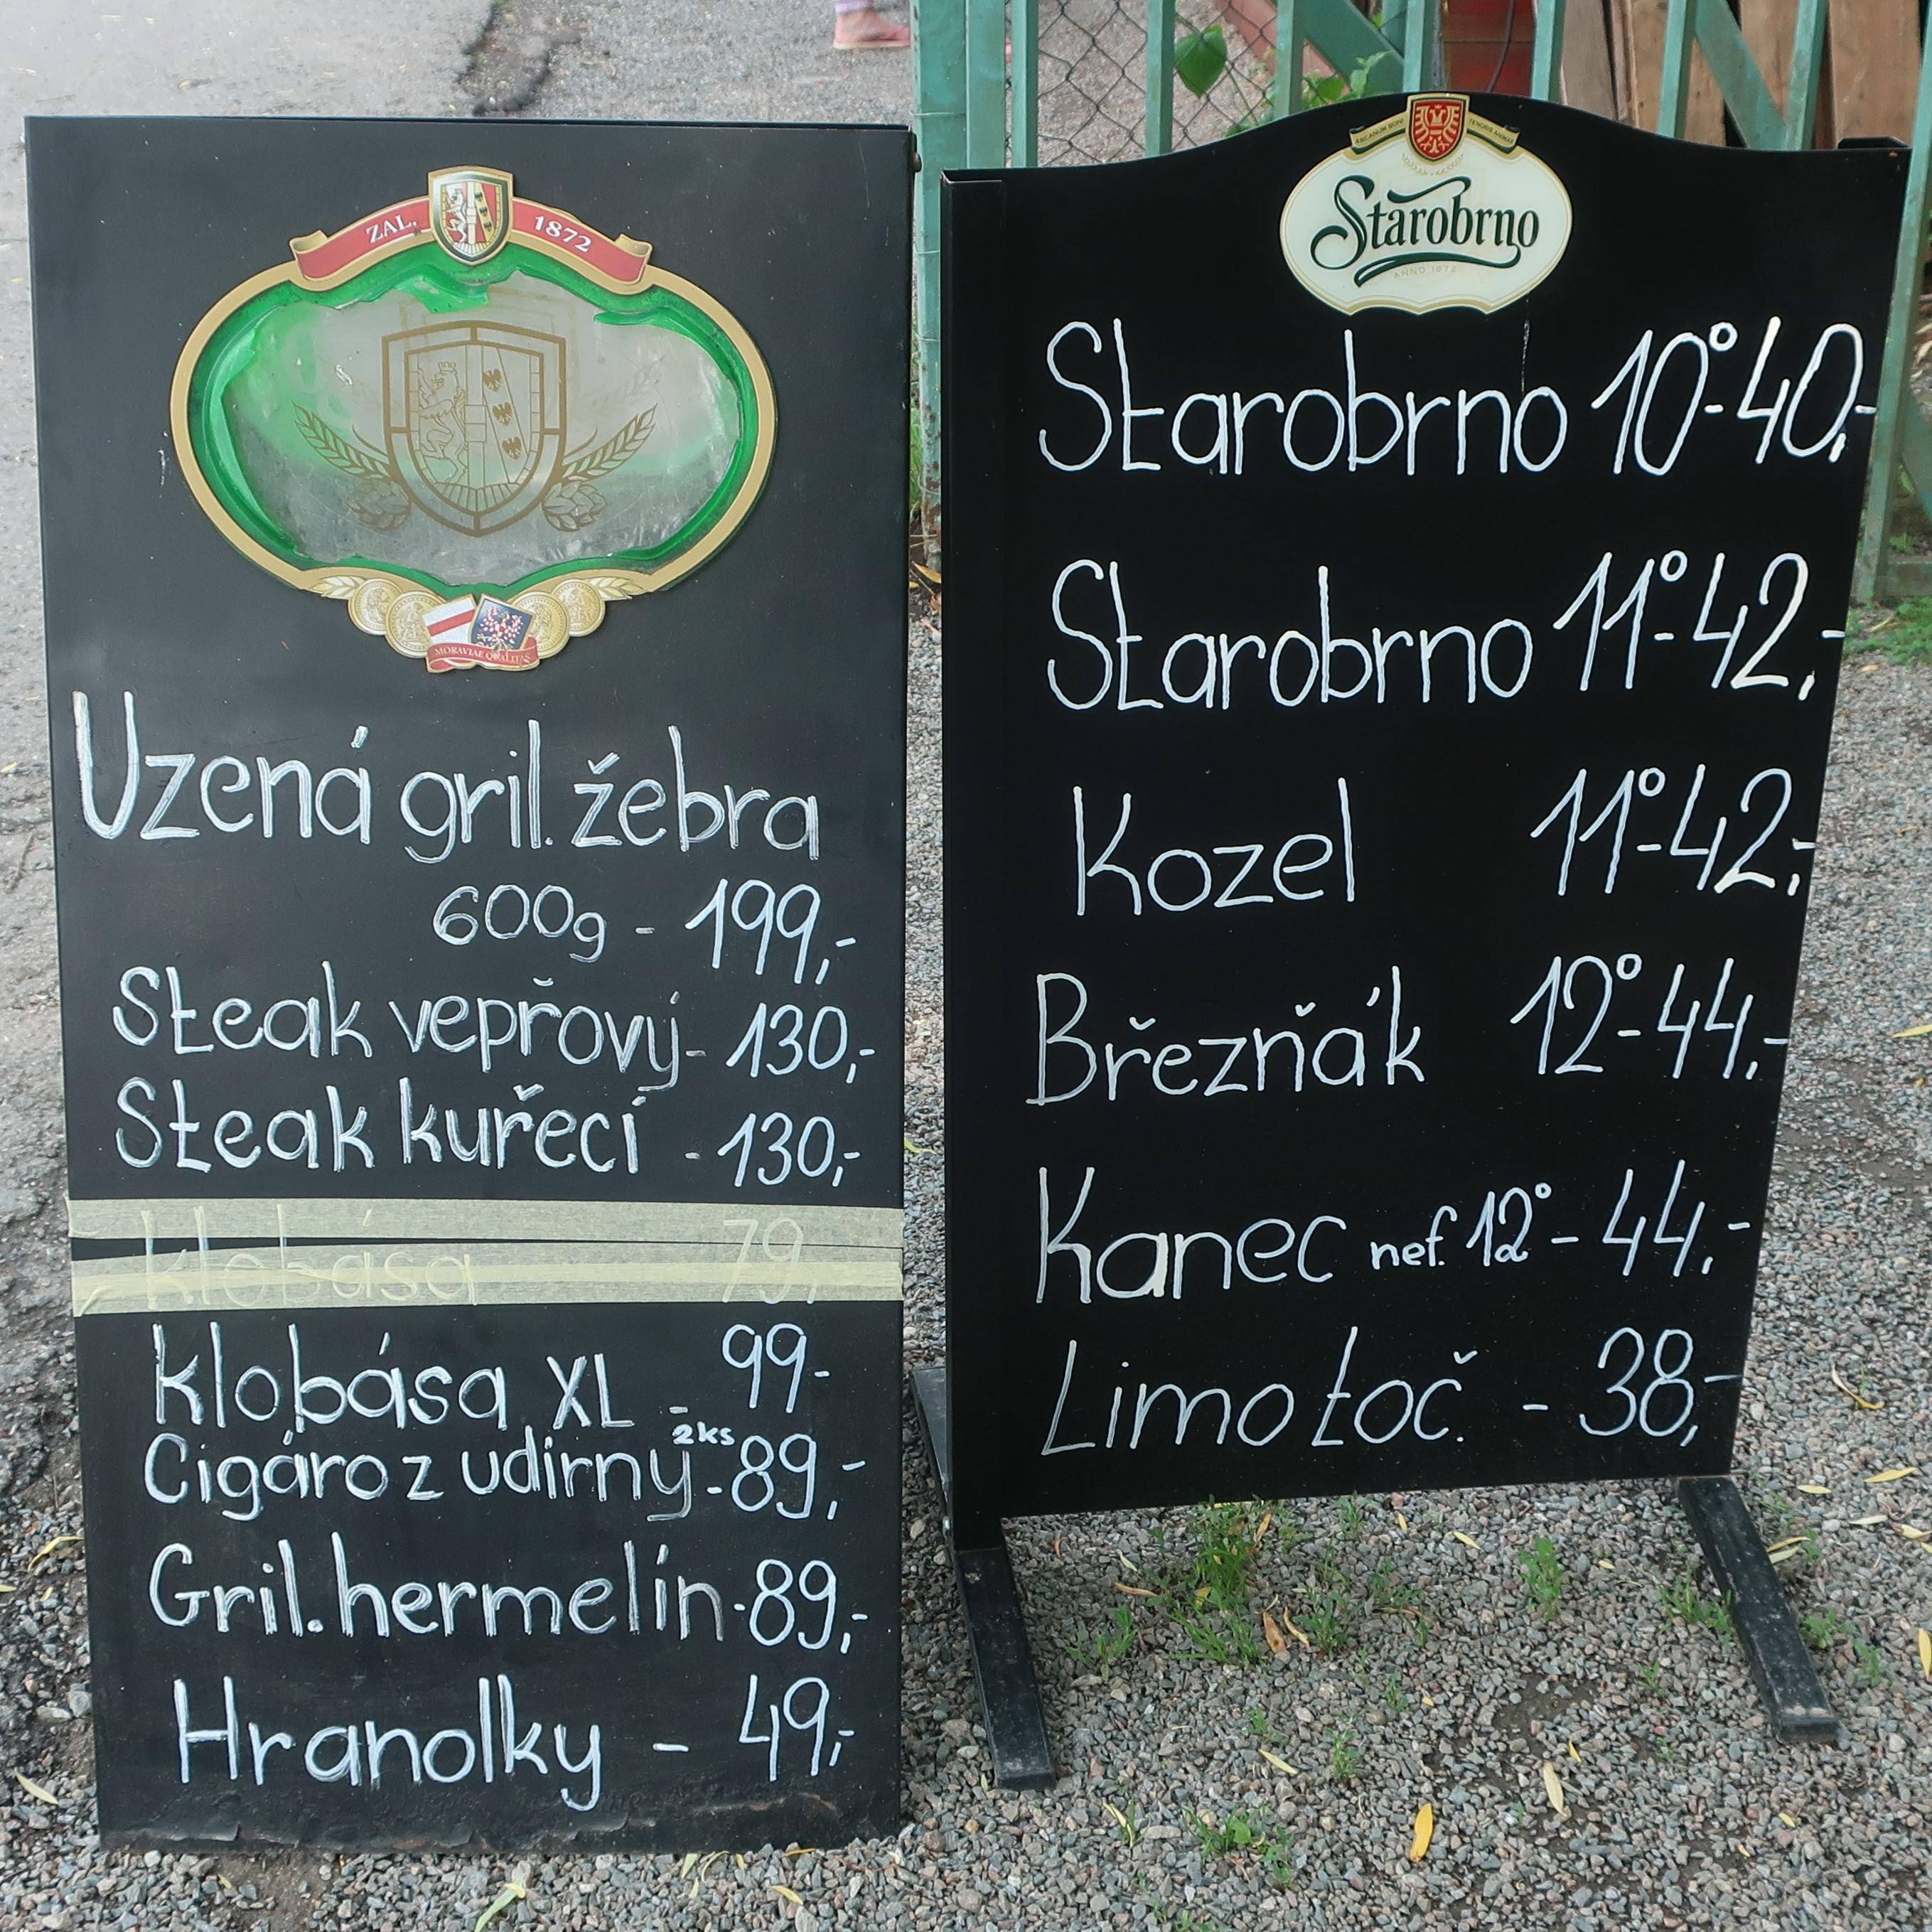 ZAL. 1872
MORAVIAE QUALITAS
Uzená gril. žebra
600g - 199,-
Steak vepřový - 130,-
Steak kuřecí - 130,-
klobása 79,-
klobása XL - 99-
Cigáro z udírny 2ks - 89,-
Gril. hermelín - 89,-
Hranolky - 49,-
Starobrno
ANNO 1872
Starobrno 10° - 40,-
Starobrno 11° - 42,-
Kozel 11° - 42,-
Březňák 12° - 44,-
Kanec nef. 12° - 44,-
Limo toč. - 38,-